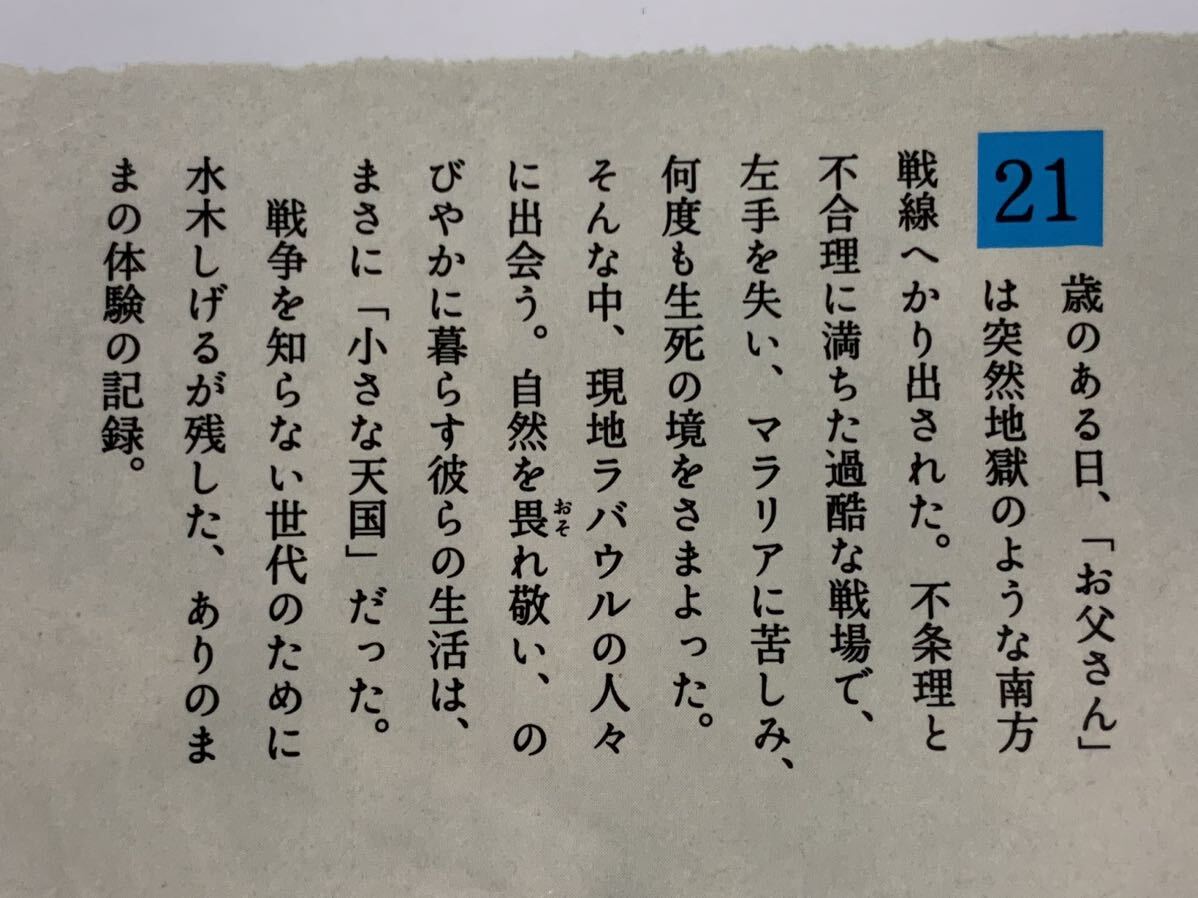 21歳のある日、「お父さん」
は突然地獄のような南方
戦線へかり出された。不条理と
不合理に満ちた過酷な戦場で、
左手を失い、マラリアに苦しみ、
何度も生死の境をさまよった。
そんな中、現地ラバウルの人々
に出会う。自然を畏れ敬い、の
おそ
びやかに暮らす彼らの生活は、
まさに「小さな天国」だった。
戦争を知らない世代のために
水木しげるが残した、ありのま
まの体験の記録。